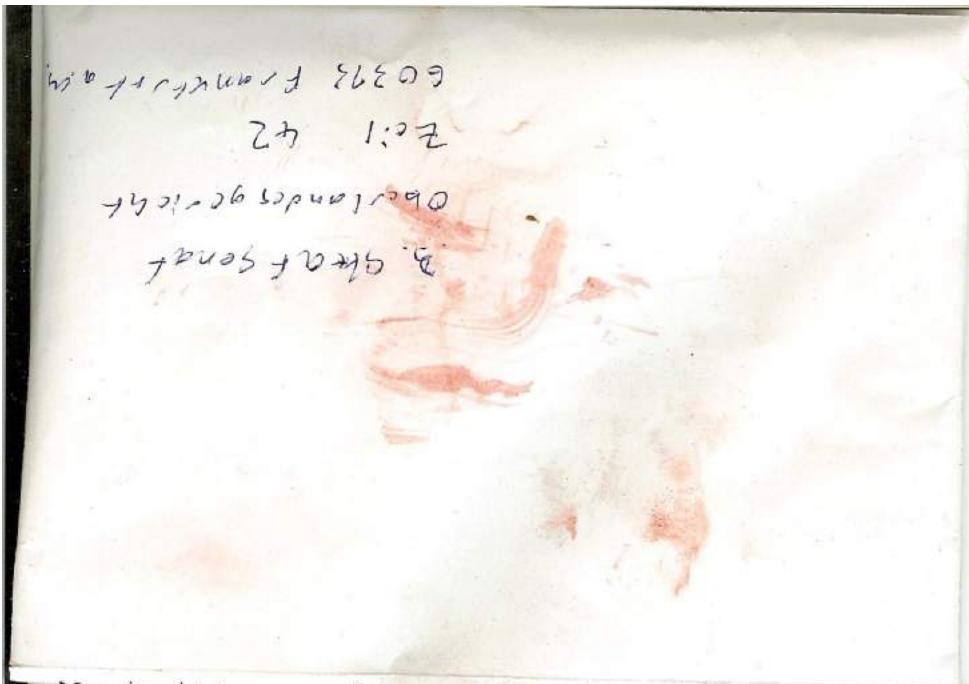 3. Strafsenat
Oberlandesgericht
Zeil 42
60313 Frankfurt a.M.